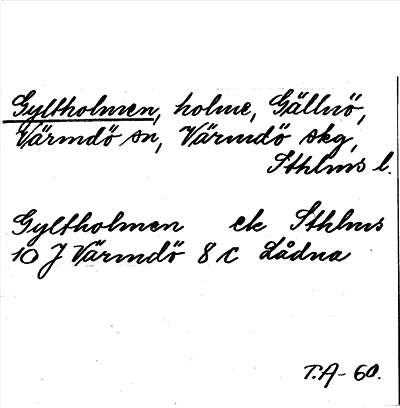 Gyltholmen, holme, Gällnö,
Värmdö sn, Värmdö skg,
Sthlms l.
Gyltholmen ek Sthlms
10 J Värmdö 8 c Lådna
T.A- 60.